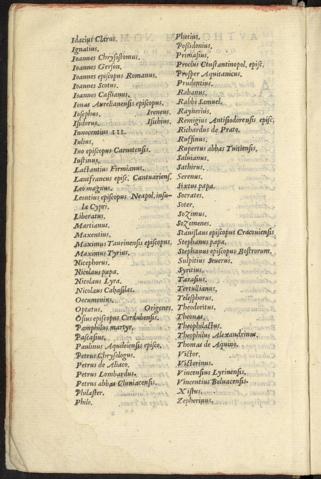 Idacius Clarus.
Ignatius.
Ioannes Chrysostomus.
Ioannes Gerson.
Ioannes episcopus Romanus.
Ioannes Scotus.
Ioannes Cassianus.
Ionas Aurelianensis episcopus.
Iosephus. Ireneus.
Isidorus. Isichius.
Innocentius III.
Iulius.
Iuo episcopus Carnotensis.
Iustinus.
Lactantius Firmianus.
Lanfrancus episc. Cantuariens.
Leo magnus.
Leontius episcopus Neapol. insu-
læ Cypri.
Liberatus.
Martianus.
Maxentius.
Maximus Taurinensis episcopus.
Maximus Tyrius.
Nicephorus.
Nicolaus papa.
Nicolaus Lyra.
Nicolaus Cabasilas.
Oecumenius.
Optatus. Origenes.
Osius episcopus Cordubensis.
Pamphilus martyr.
Pascasius.
Paulinus Aquileiensis episc.
Petrus Chrysologus.
Petrus de Aliaco.
Petrus Lombardus.
Petrus abbas Cluniacensis.
Philaster.
Philo.
Photius.
Possidonius.
Primasius.
Proclus Constantinopol. episc.
Prosper Aquitanicus.
Prudentius.
Rabanus.
Rabbi Samuel.
Raynerius.
Remigius Antissiodorensis episc.
Richardus de Prato.
Ruffinus.
Rupertus abbas Tuitiensis.
Saluianus.
Sathirus.
Serenus.
Sixtus papa.
Socrates.
Soter.
SoZimus.
SoZomenes.
Stanislaus episcopus Cracouiensis
Stephanus papa.
Stephanus episcopus Bostrorum.
Sulpitius Seuerus.
Syritius.
Tarasius.
Tertullianus.
Telesphorus.
Theodoritus.
Thomas.
Theophilactus.
Theophilus Alexandrinus.
Thomas de Aquino.
Victor.
Victorinus.
Vincentius Lyrinensis.
Vincentius Beluacensis.
Xistus.
Zepherinus.